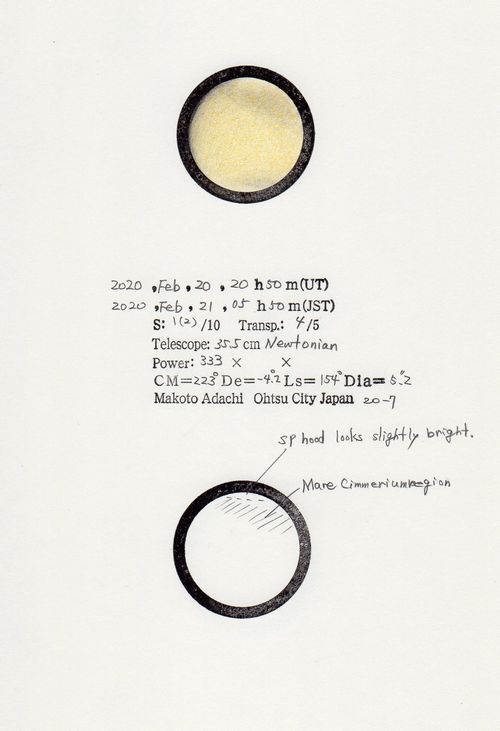 2020 , Feb , 20 , 20 h 50 m (UT)
2020 , Feb , 21 , 05 h 50 m (JST)
S: 1(2) /10 Transp.: 4/5
Telescope: 35.5 cm Newtonian
Power: 333 × ×
CM=223° De=-4.°2 Ls=154° Dia=5."2
Makoto Adachi Ohtsu City Japan 20-7
SP hood looks slightly bright.
Mare Cimmerium region